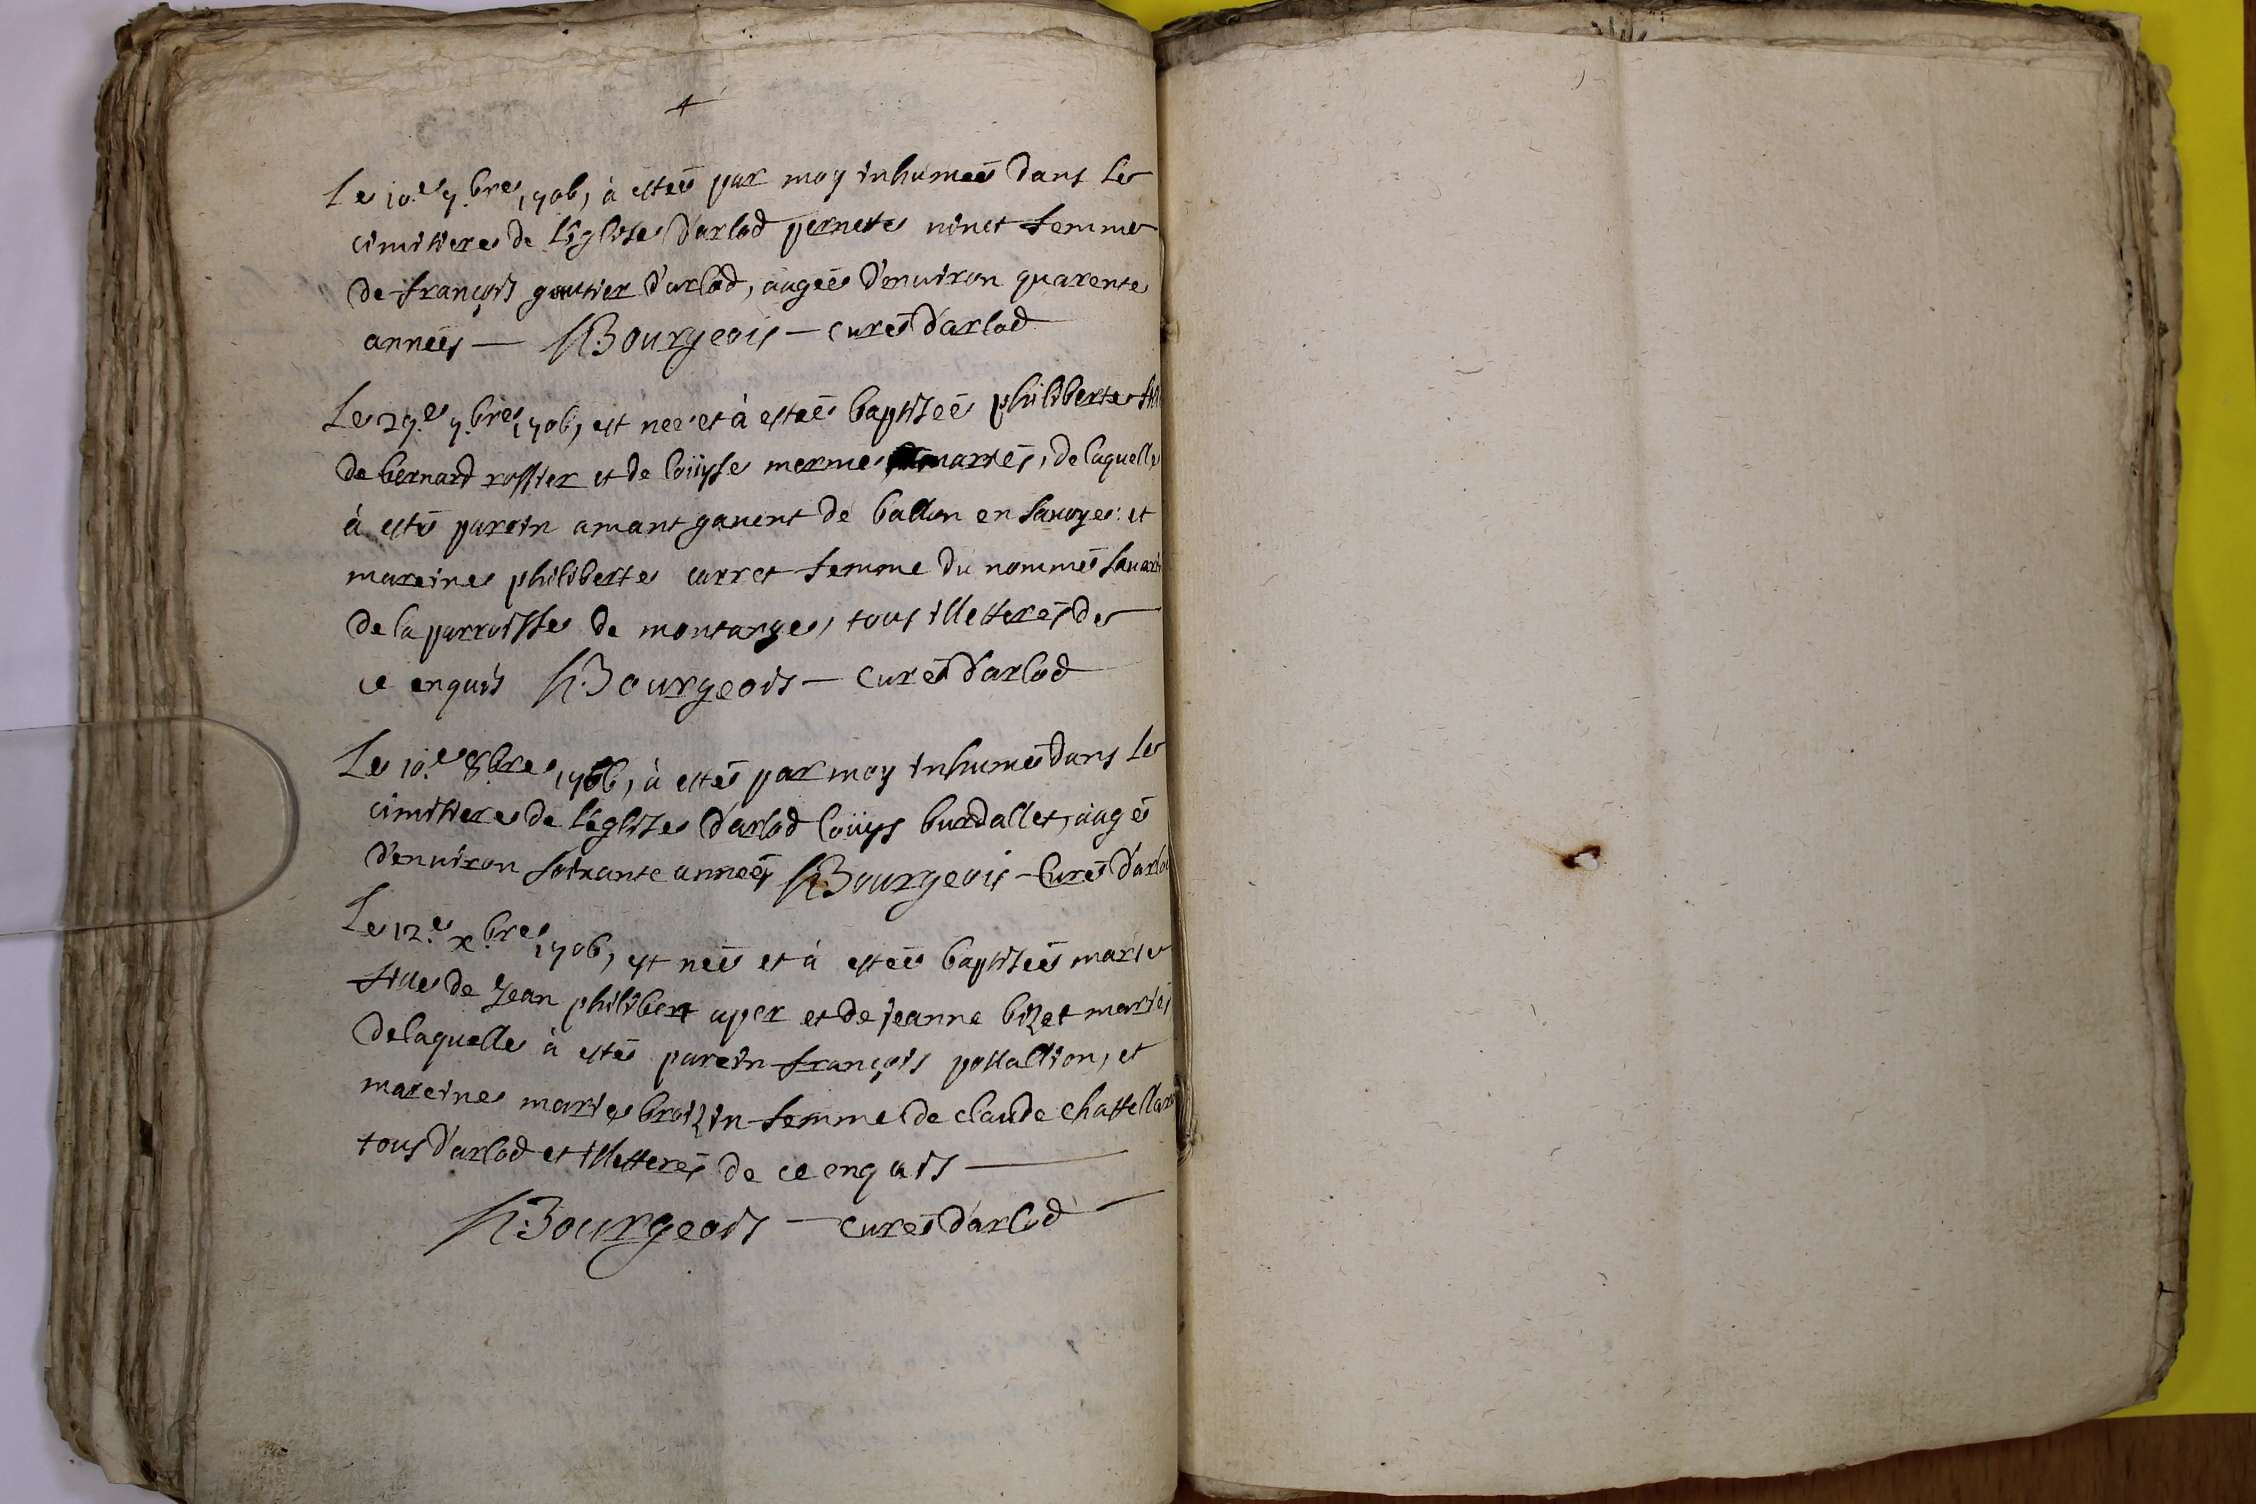 Le 10.e 7.bre 1706, à estée par moy inhumeé dans le
cimitiere de l'église d'arlod pernete ninet femme
de françois goutier d'arlod, augeé d'enuiron quarente
annéés — Bourgeois — curé d'arlod
Le 29.e 7.bre 1706, est neé et à estéé baptiséé philiberte
de bernard rossier et de loüyse merme mariés, de laquelle
à esté parein amant gauent de ballon en sauoye: et
mareine philiberte carret femme du nommé
de la parroisse de montange, tous illetterés de
ce enquis Bourgeois — curé d'arlod
Le 10.e 8.bre 1706, à esté par moy inhumé dans le
cimitiere de l'église d'arlod loüys burdallet, augé
d'enuiron soixante annéés Bourgeois — Curé d'arlod
Le 12.e x.bre 1706, est neé et à estéé baptiseé marie
fille de Jean philibert uper et de jeanne bizet mariés
de laquelle à esté parein françois postallion, et
mareine marie broizin femme de claude chastellard
tous d'arlod et illetterés de ce enquis —
Bourgeois — curé d'arlod